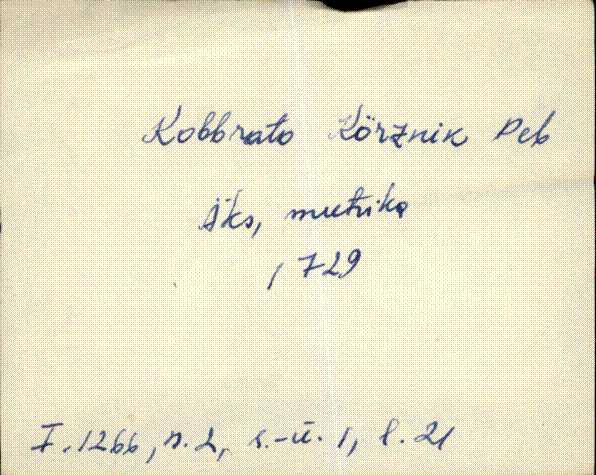 Kobbrato Körznik Peb
Äks, mutrika
1729
F. 1266, n. 2, s.-ü. 1, l. 21